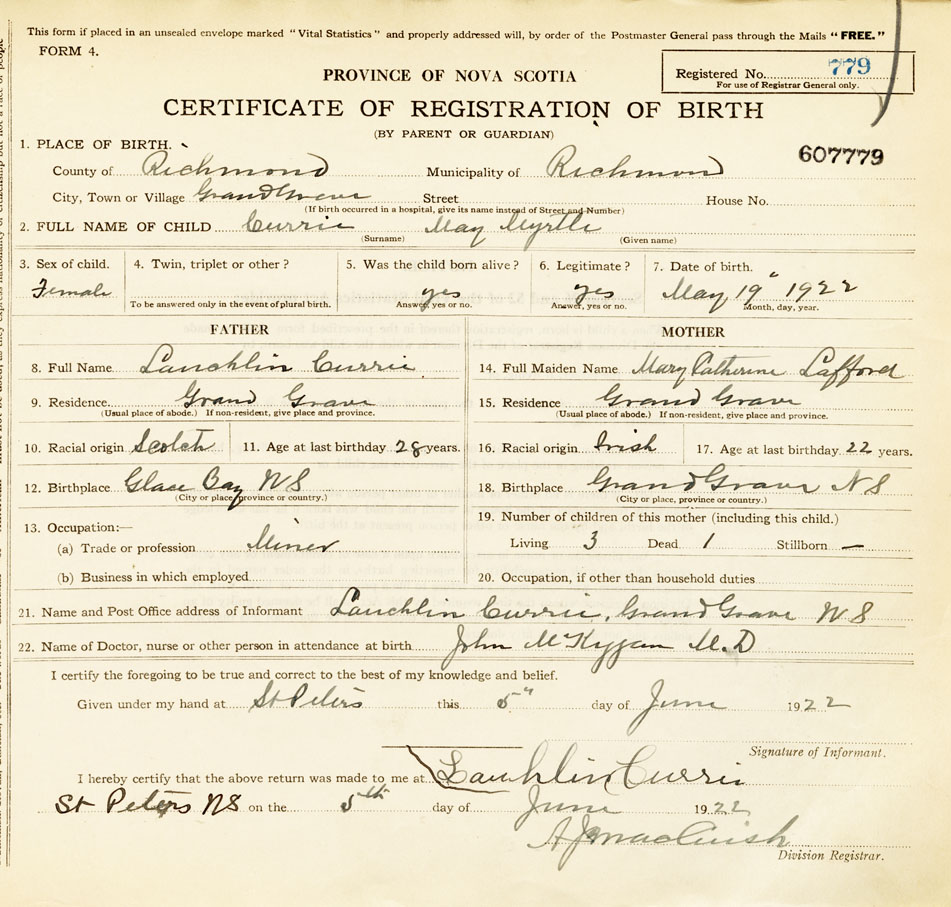 This form if placed in an unsealed envelope marked "Vital Statistics" and properly addressed will, by order of the Postmaster General pass through the Mails "FREE."
FORM 4.
Registered No. 779
For use of Registrar General only.
PROVINCE OF NOVA SCOTIA
CERTIFICATE OF REGISTRATION OF BIRTH
(BY PARENT OR GUARDIAN)
607779
1. PLACE OF BIRTH.
County of Richmond Municipality of Richmond
City, Town or Village Grand Grave Street House No.
(If birth occurred in a hospital, give its name instead of Street and Number)
2. FULL NAME OF CHILD Currie May Myrtle
(Surname) (Given name)
3. Sex of child. 4. Twin, triplet or other? 5. Was the child born alive? 6. Legitimate? 7. Date of birth.
Female yes yes May 19" 1922
To be answered only in the event of plural birth. Answer, yes or no. Answer, yes or no. Month, day, year.
FATHER
8. Full Name Lauchlin Currie
9. Residence Grand Grave
(Usual place of abode.) If non-resident, give place and province.
10. Racial origin Scotch 11. Age at last birthday 28 years.
12. Birthplace Glace Bay N S
(City or place, province or country.)
13. Occupation:—
(a) Trade or profession Miner
(b) Business in which employed
MOTHER
14. Full Maiden Name Mary Catherine Lafford
15. Residence Grand Grave
(Usual place of abode.) If non-resident, give place and province.
16. Racial origin Irish 17. Age at last birthday 22 years.
18. Birthplace Grand Grave N S
(City or place, province or country.)
19. Number of children of this mother (including this child.)
Living 3 Dead 1 Stillborn —
20. Occupation, if other than household duties
21. Name and Post Office address of Informant Lauchlin Currie, Grand Grave N S
22. Name of Doctor, nurse or other person in attendance at birth John M. D
I certify the foregoing to be true and correct to the best of my knowledge and belief.
Given under my hand at St Peters this 5" day of June 1922
Signature of Informant.
I hereby certify that the above return was made to me at Lauchlin Currie
St Peters NS on the 5th day of June 1922
Division Registrar.